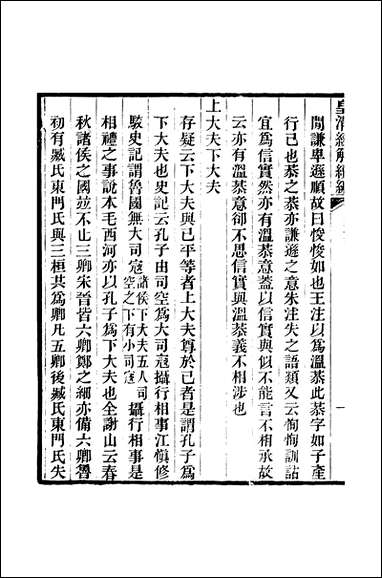 皇清經解續編
間謙卑遜順故曰恂恂如也王注以爲溫恭此恭字如子產
行己也恭之恭亦謙遜之意朱注失之語類又云恂恂訓詁
宜爲信實然亦有溫恭意蓋以信實與似不能言不相承故
云亦有溫恭意卻不思信實與溫恭義不相涉也
上大夫下大夫
存疑云下大夫與己平等者上大夫尊於己者是謂孔子爲
下大夫也史記云孔子由司空爲大司寇攝行相事江愼修
駁史記謂魯國無大司寇諸侯下大夫五人司空之下有小司寇攝行相事是
相禮之事說本毛西河亦以孔子爲下大夫也全謝山云春
秋諸侯之國並不止三卿宋晉皆六卿鄭之細亦備六卿魯
初有臧氏東門氏與三桓共爲卿凡五卿後臧氏東門氏失
一